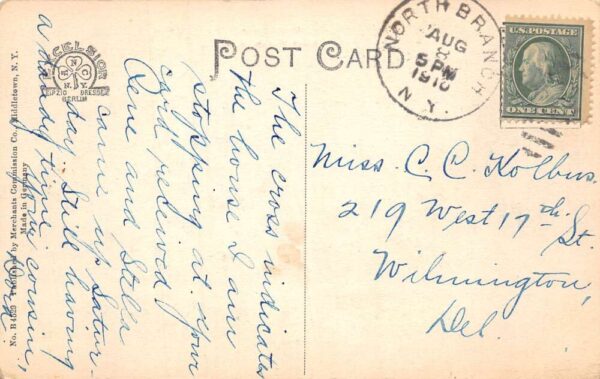 POST CARD
EXCELSIOR
LEIPZIG DRESDEN
BERLIN
No. R4529 Published by Merchants Commission Co., Middletown, N. Y.
Made in Germany
NORTH BRANCH
AUG
8
5 PM
1910
N.Y.
U.S. POSTAGE
ONE CENT
The cross indicates
the house I am
stopping at. Your
card received
Rene and Stella
came up Satur-
day. Still having
a dandy time
Your cousin,
Miss. C. C. Kolbus.
219 West 17th St.
Wilmington,
Del.